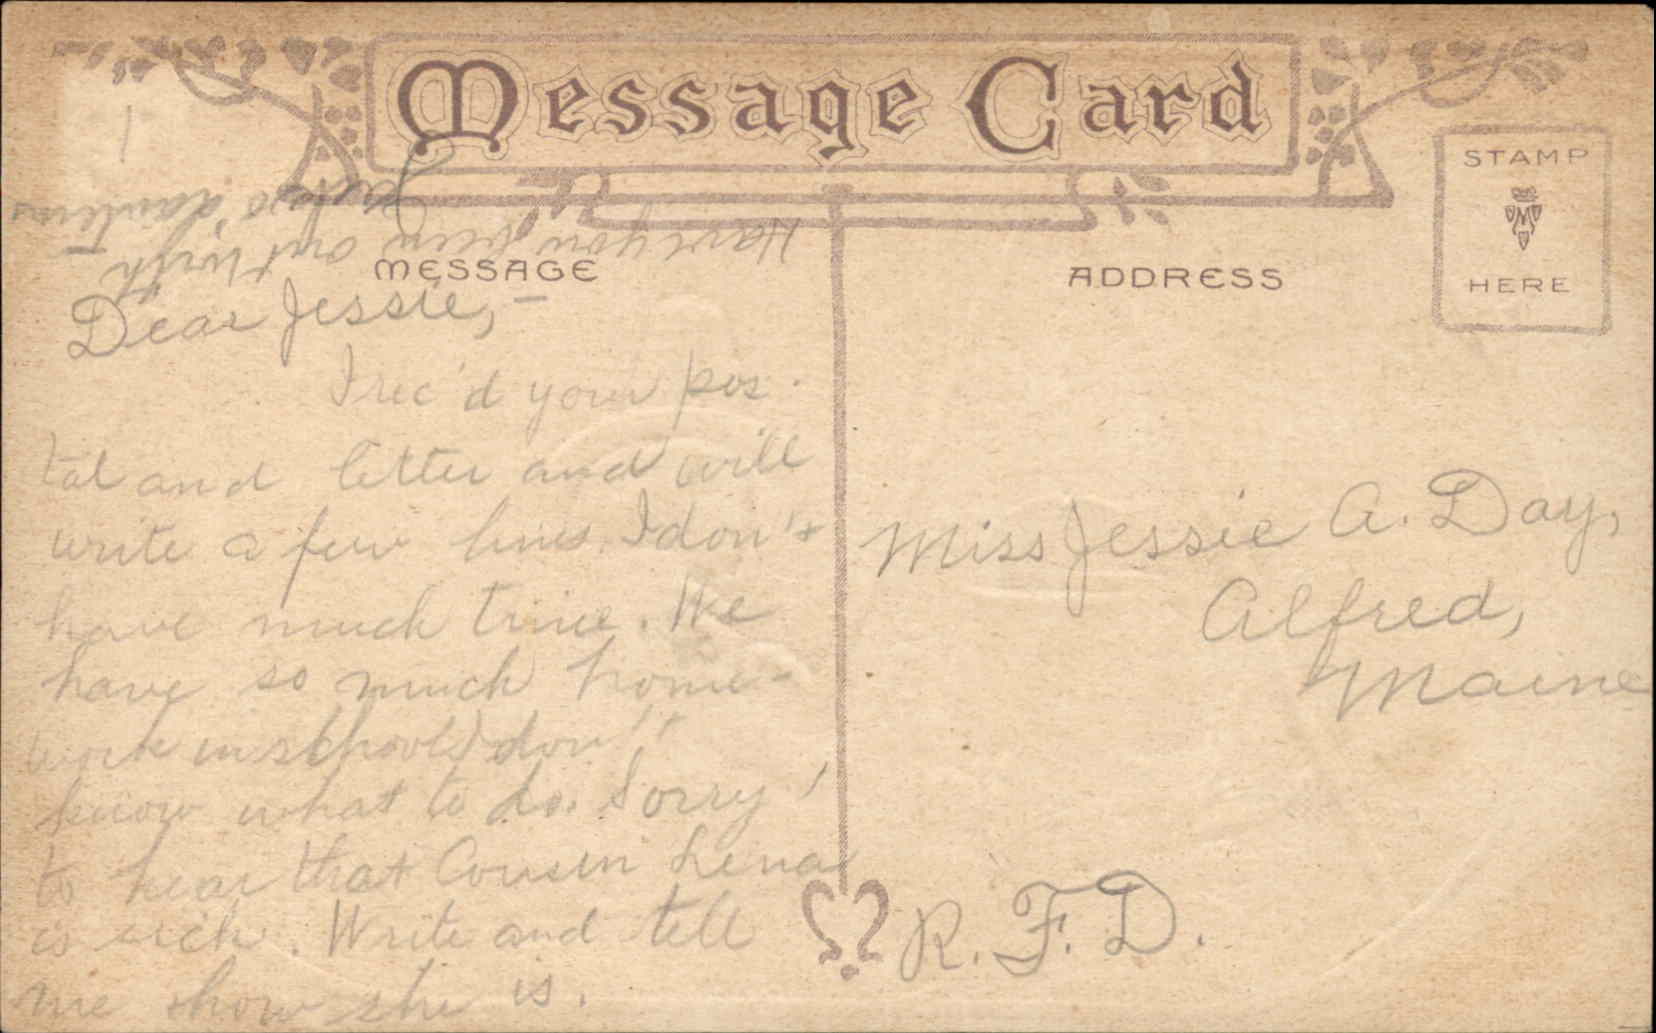 Message Card
STAMP
HERE
MESSAGE
ADDRESS
Have you been out with
Dear Jessie,—
I rec'd your pos-
tal and letter and will
write a few lines. I don't
have much time. We
have so much home-
work in school I don't
know what to do. Sorry
to hear that Cousin Lena
is sick. Write and tell
me show she is.
Miss Jessie A. Day,
Alfred,
Maine
R. F. D.